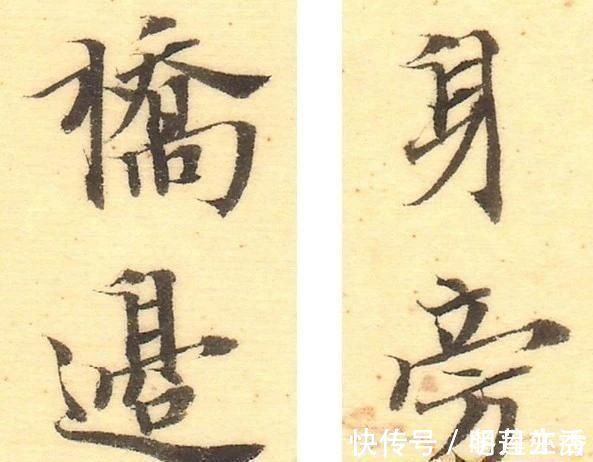 橋邊
身旁
快传号 /